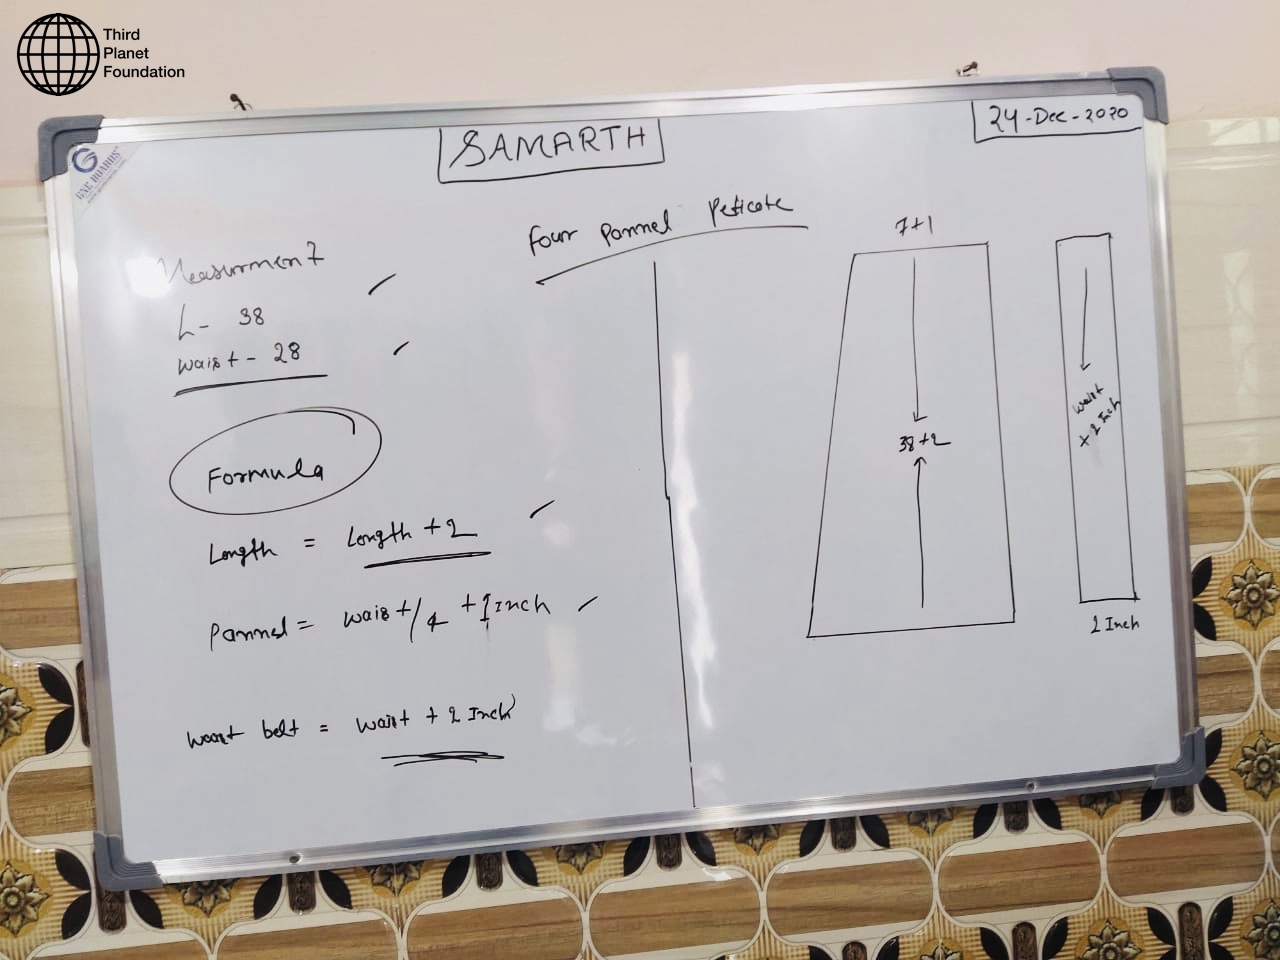 Third
Planet
Foundation
GNE BOARDS
SAMARTH
24-Dec-2020
Four Pannel Peticote
Measurment
L- 38
waist - 28
Formula
Length = Length + 2
Pannel = waist/4 + 1 Inch
waist belt = waist + 2 Inch
7+1
38+2
waist
+ 2 Inch
2 Inch